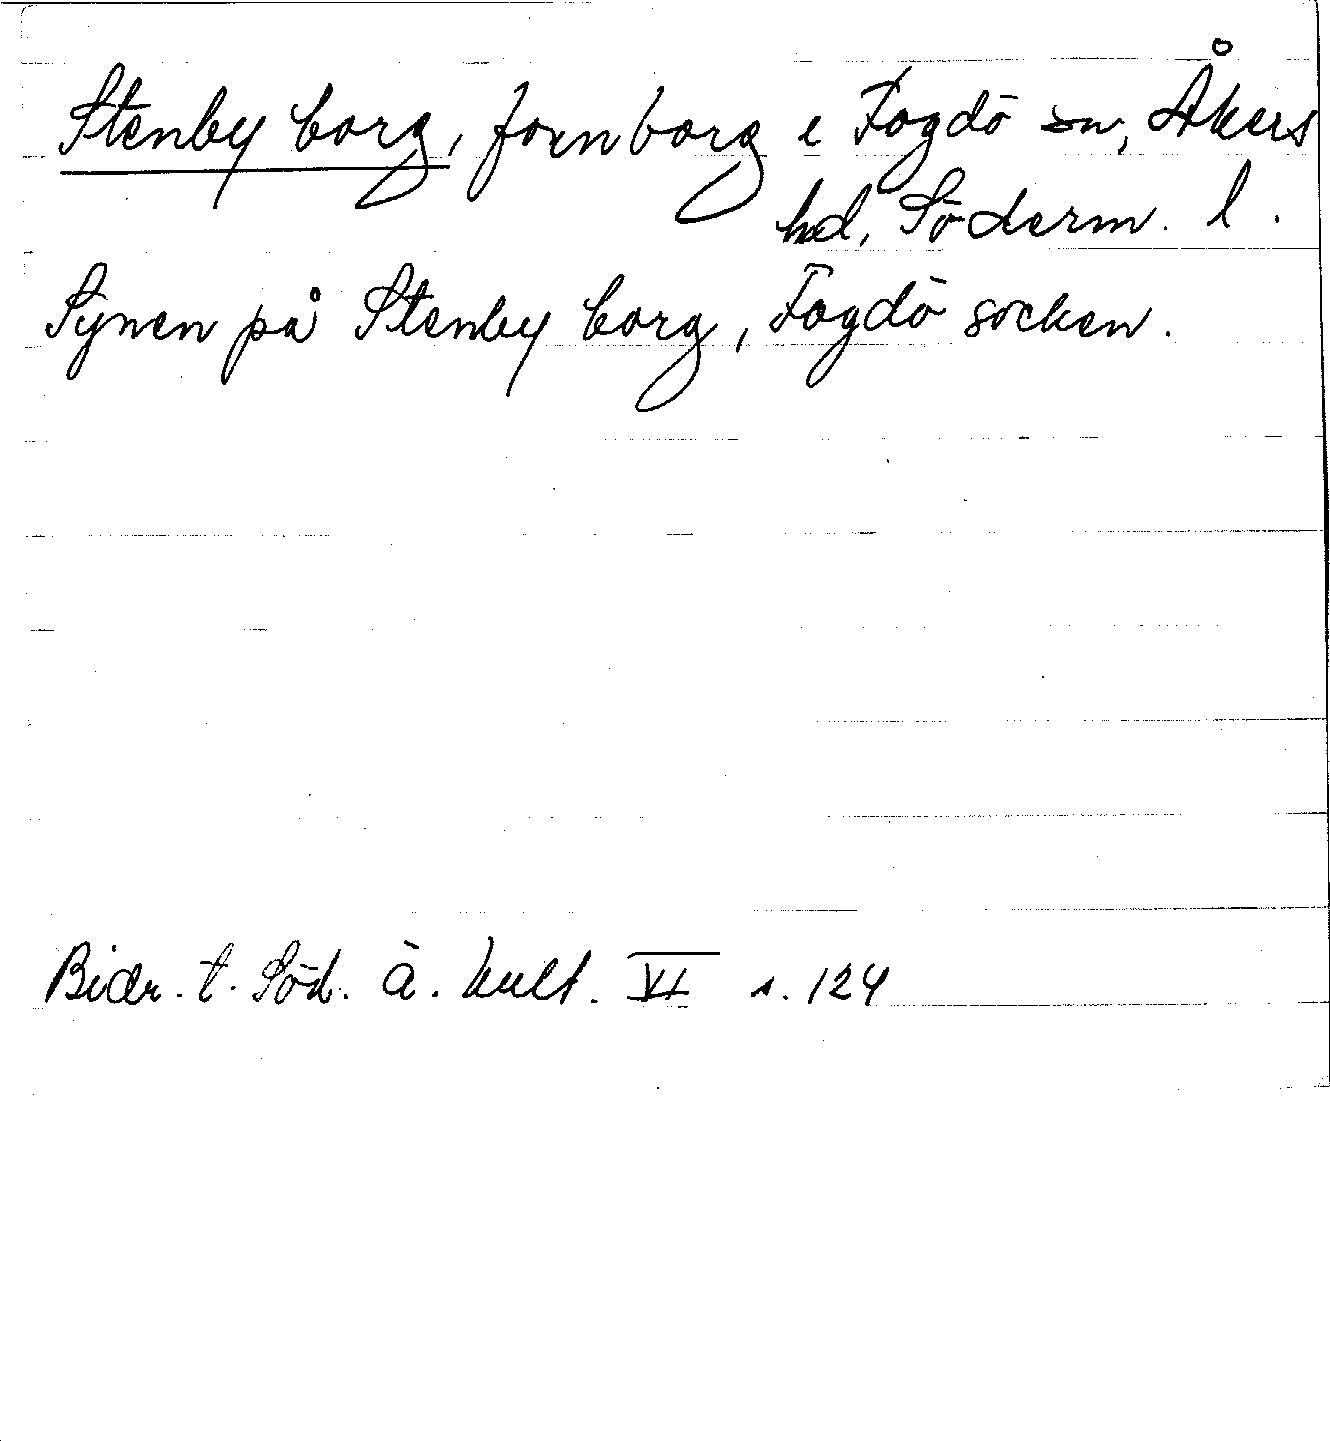 Stenby borg, fornborg i Fogdö sn, Åkers
hd, Söderm. l.
Synen på Stenby borg, Fogdö socken.
Bidr. t. Söd. ä. kult. VI s. 124